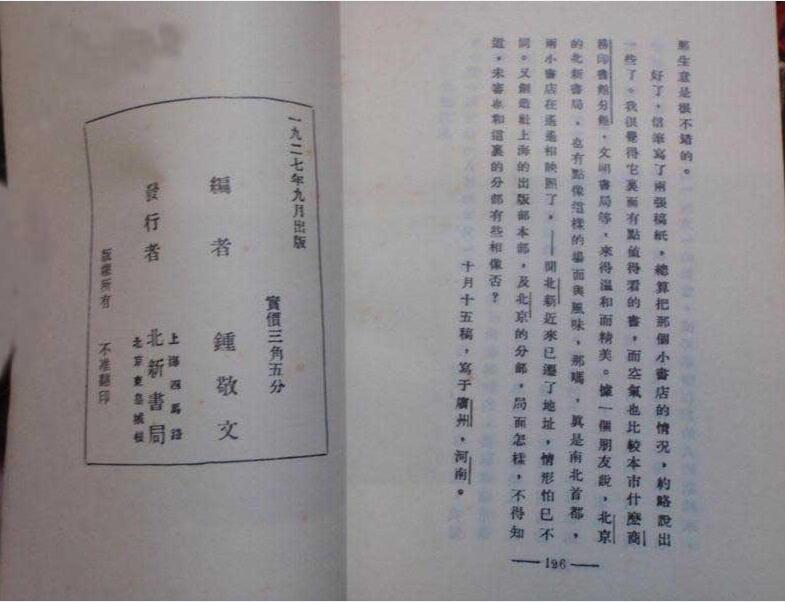 那生意是很不錯的。
好了，信筆寫了兩張稿紙，總算把那個小書店的情況，約略說出
一些了。我很覺得它裏面有點值得看的書，而空氣也比較本市什麼商
務印書館分館，文明書局等，來得溫和而精美。據一個朋友說，北京
的北新書局，也有點像這樣的場面與風味，那嗎，眞是南北首都，
兩小書店在遙遙相映照了。——聞北新近來已遷了地址，情形怕已不
同。又創造社上海的出版部本部，及北京的分部，局面怎樣，不得知
道，未審也和這裏的分部有些相像否？
十月十五稿，寫于廣州，河南。
—126—
一九二七年九月出版
實價三角五分
編者 鍾敬文
發行者 北新書局
上海四馬路
北京東皇城根
版權所有 不准翻印